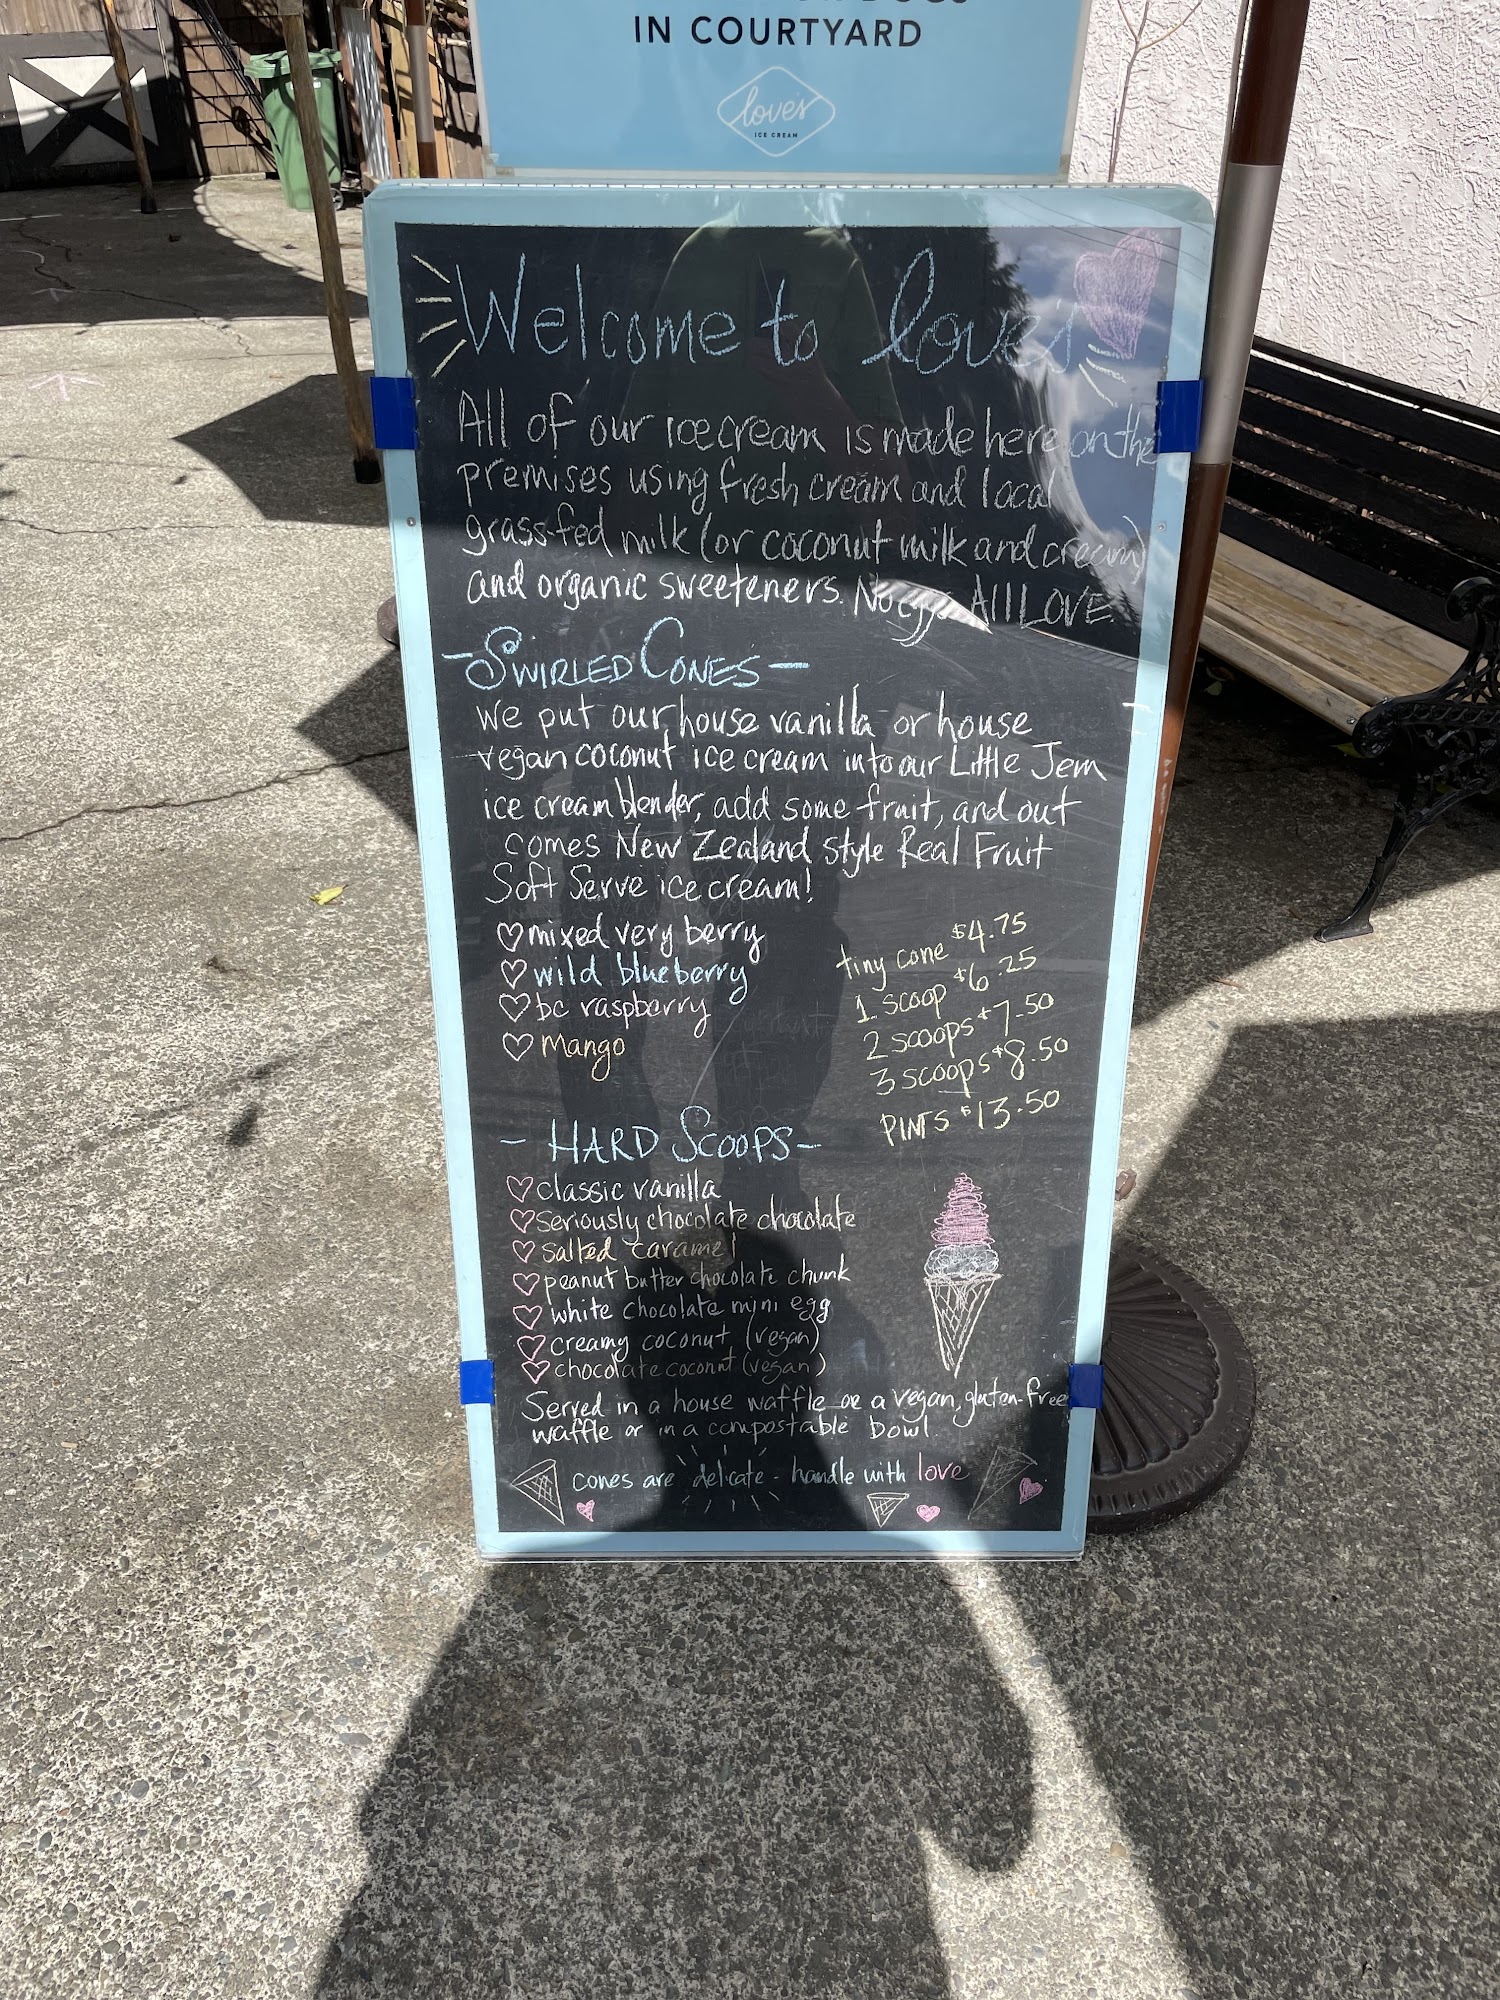 IN COURTYARD
love's
ICE CREAM
Welcome to love's
All of our ice cream is made here on the
premises using fresh cream and local
grass-fed milk (or coconut milk and cream)
and organic sweeteners. No eggs All LOVE.
- SWIRLED CONES -
We put our house vanilla or house
vegan coconut ice cream into our Little Jem
ice cream blender, add some fruit, and out
comes New Zealand style Real Fruit
Soft Serve ice cream!
♡ mixed very berry
♡ wild blueberry
♡ bc raspberry
♡ mango
tiny cone $4.75
1 scoop $6.25
2 scoops $7.50
3 scoops $8.50
PINTS $13.50
- HARD SCOOPS -
♡ classic vanilla
♡ seriously chocolate chocolate
♡ salted caramel
♡ peanut butter chocolate chunk
♡ white chocolate mini egg
♡ creamy coconut (vegan)
♡ chocolate coconut (vegan)
Served in a house waffle or a vegan, gluten-free
waffle or in a compostable bowl.
cones are delicate - handle with love